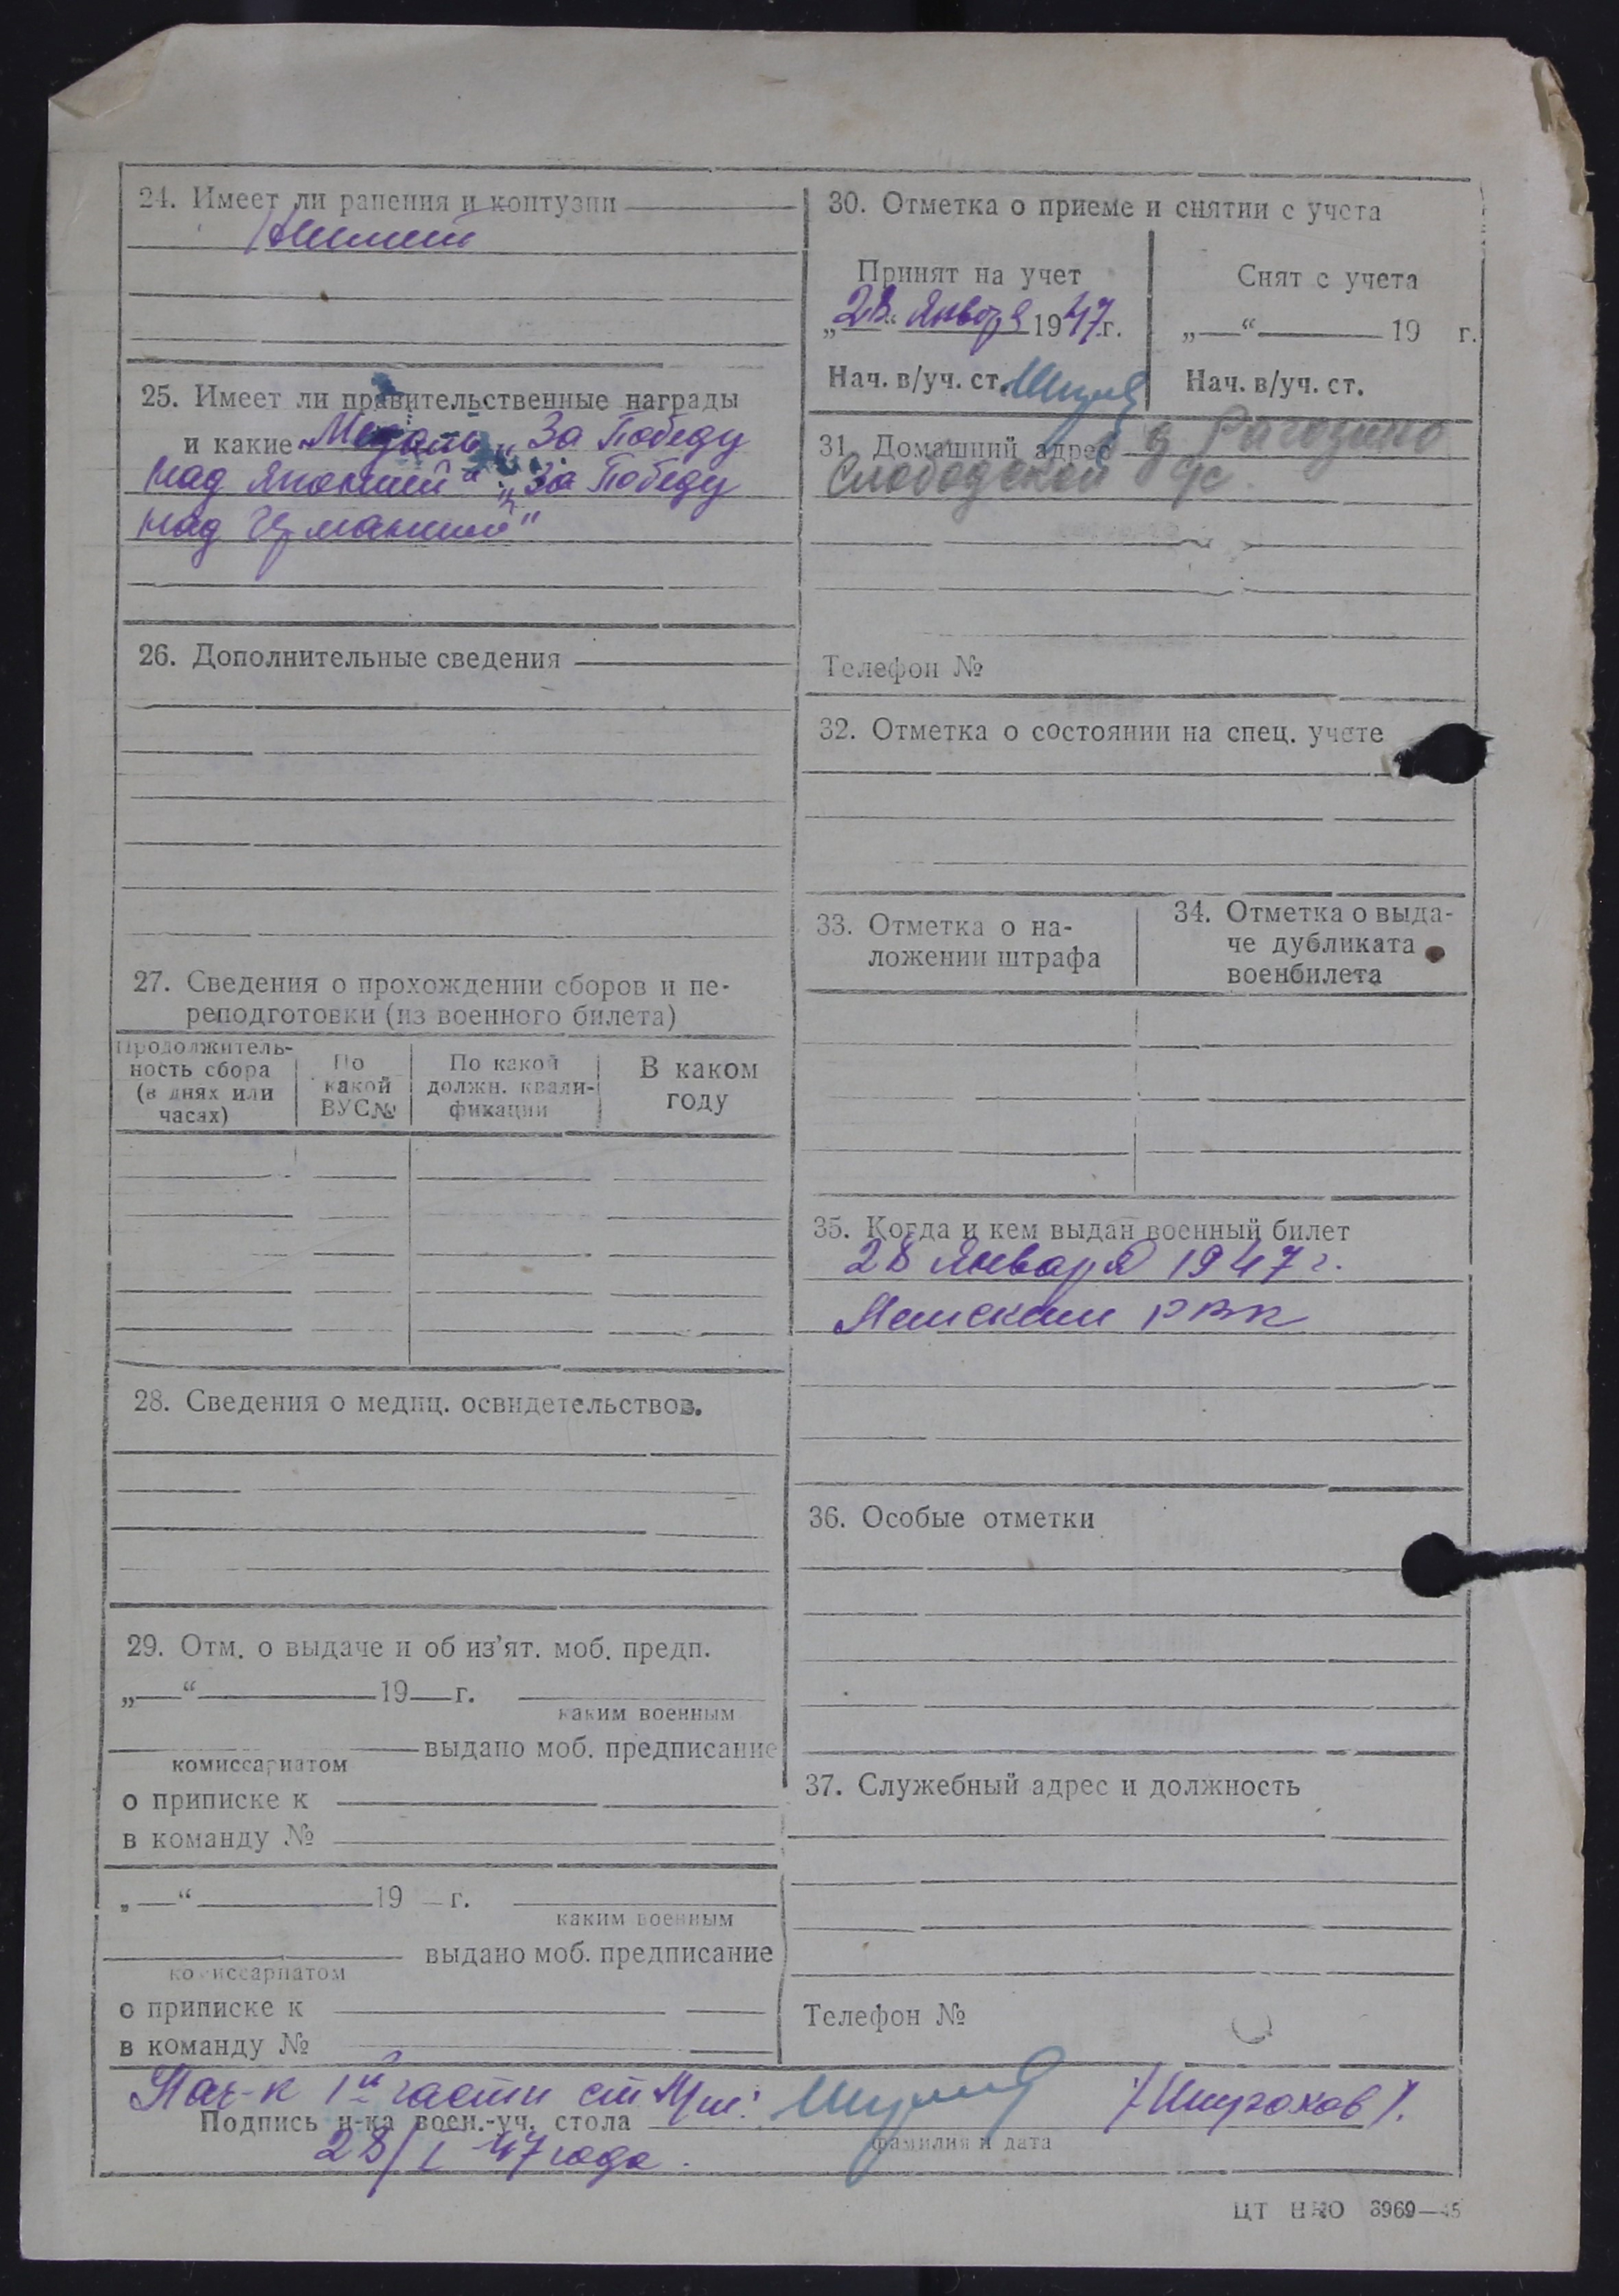 24. Имеет ли ранения и контузии
Не имеет
25. Имеет ли правительственные награды
и какие Медаль „За Победу
над Японией“ „За Победу
над Германией"
26. Дополнительные сведения
27. Сведения о прохождении сборов и пе-
реподготовки (из военного билета)
Продолжитель-
ность сбора
(в днях или
часах)
По
какой
ВУС№
По какой
должн. квали-
фикации
В каком
году
28. Сведения о медиц. освидетельствов.
29. Отм. о выдаче и об из’ят. моб. предп.
„—“ 19—г.
каким военным
выдано моб. предписание
комиссариатом
о приписке к
в команду №
„—“ 19 —г.
каким военным
выдано моб. предписание
комиссариатом
о приписке к
в команду №
30. Отметка о приеме и снятии с учета
Принят на учет
„28“ Января 1947 г.
Нач. в/уч. ст.
Снят с учета
„—“ 19 г.
Нач. в/уч. ст.
31. Домашний адрес д Рагозино
Слободской с
Телефон №
32. Отметка о состоянии на спец. учете
33. Отметка о на-
ложении штрафа
34. Отметка о выда-
че дубликата
военбилета
35. Когда и кем выдан военный билет
28 Января 1947 г.
РВК
36. Особые отметки
37. Служебный адрес и должность
Телефон №
Нач-к 1й части ст
Подпись н-ка воен.-уч. стола
фамилия и дата
28/I 47 года.
ЦТ НКО 3969—45